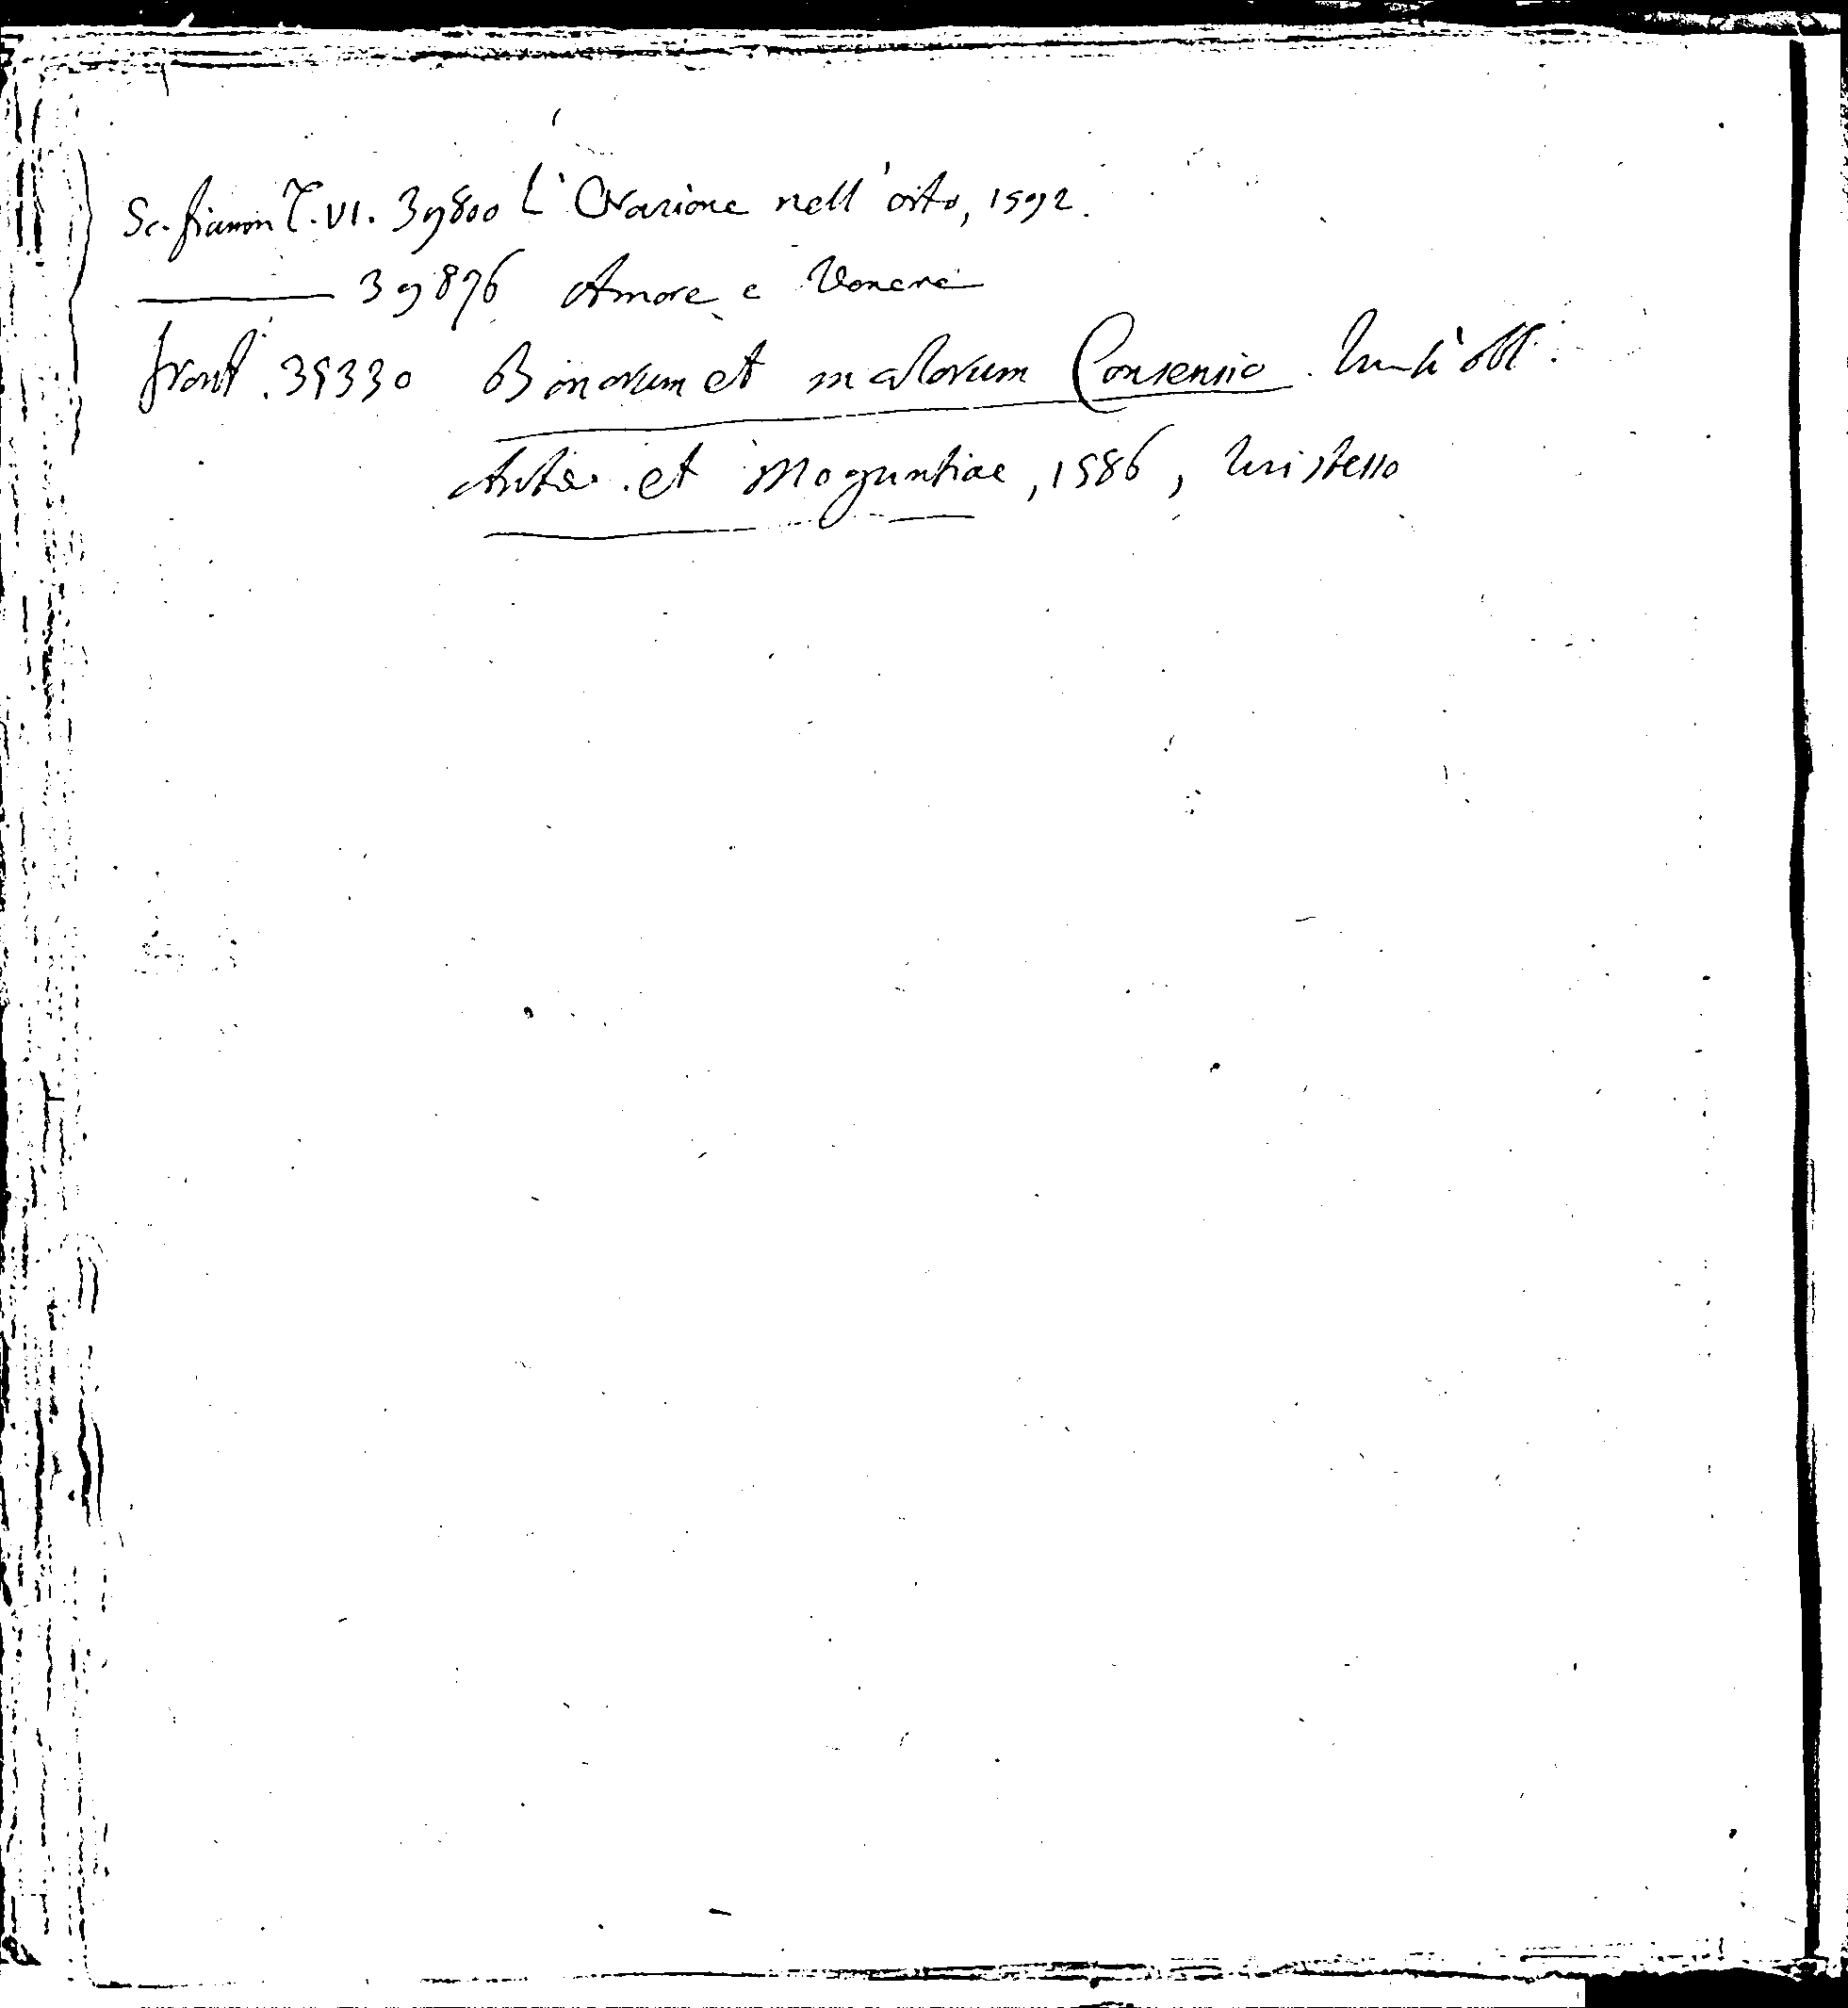 Sc. fiamm T. VI. 39800 L'Orazione nell'orto, 1592.
39876 Amore e Venere
front. 39330 Bonorum et malorum Consensio.
et Moguntiae, 1586,